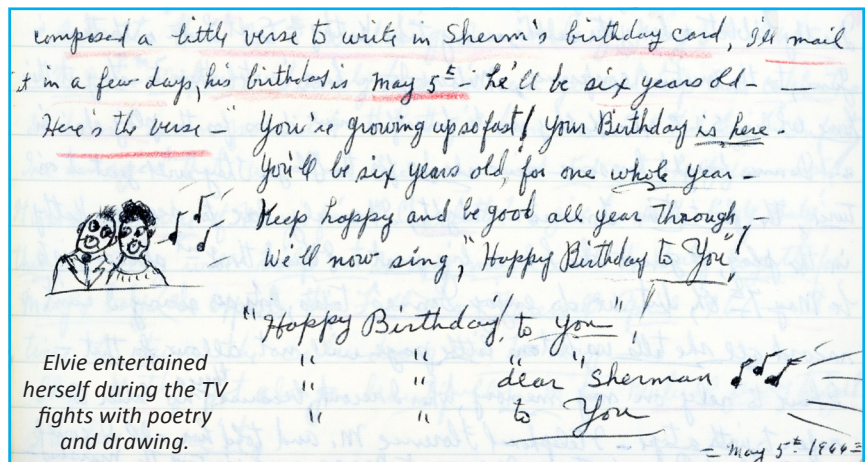 composed a little verse to write in Sherm's birthday card, I'll mail
it in a few days, his birthday is May 5th - he'll be six years old -
Here's the verse - "You're growing up so fast! Your Birthday is here -
You'll be six years old, for one whole year -
Keep happy and be good all year through,
We'll now sing, "Happy Birthday to You"!
"Happy Birthday, to You"!
" " " "
" " dear Sherman
" " to You
= May 5th 1966 =
Elvie entertained
herself during the TV
fights with poetry
and drawing.